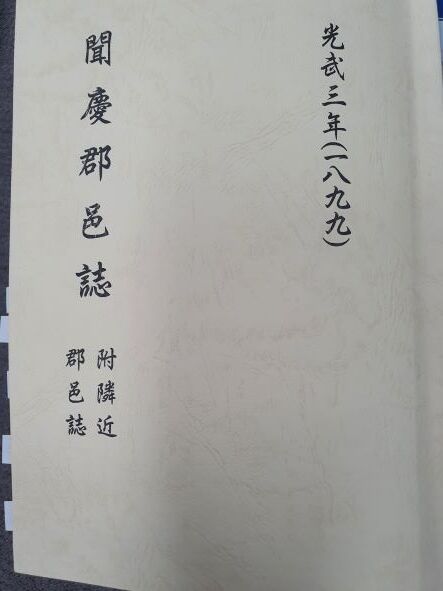 光武三年(一八九九)
聞慶郡邑誌
附隣近
郡邑誌